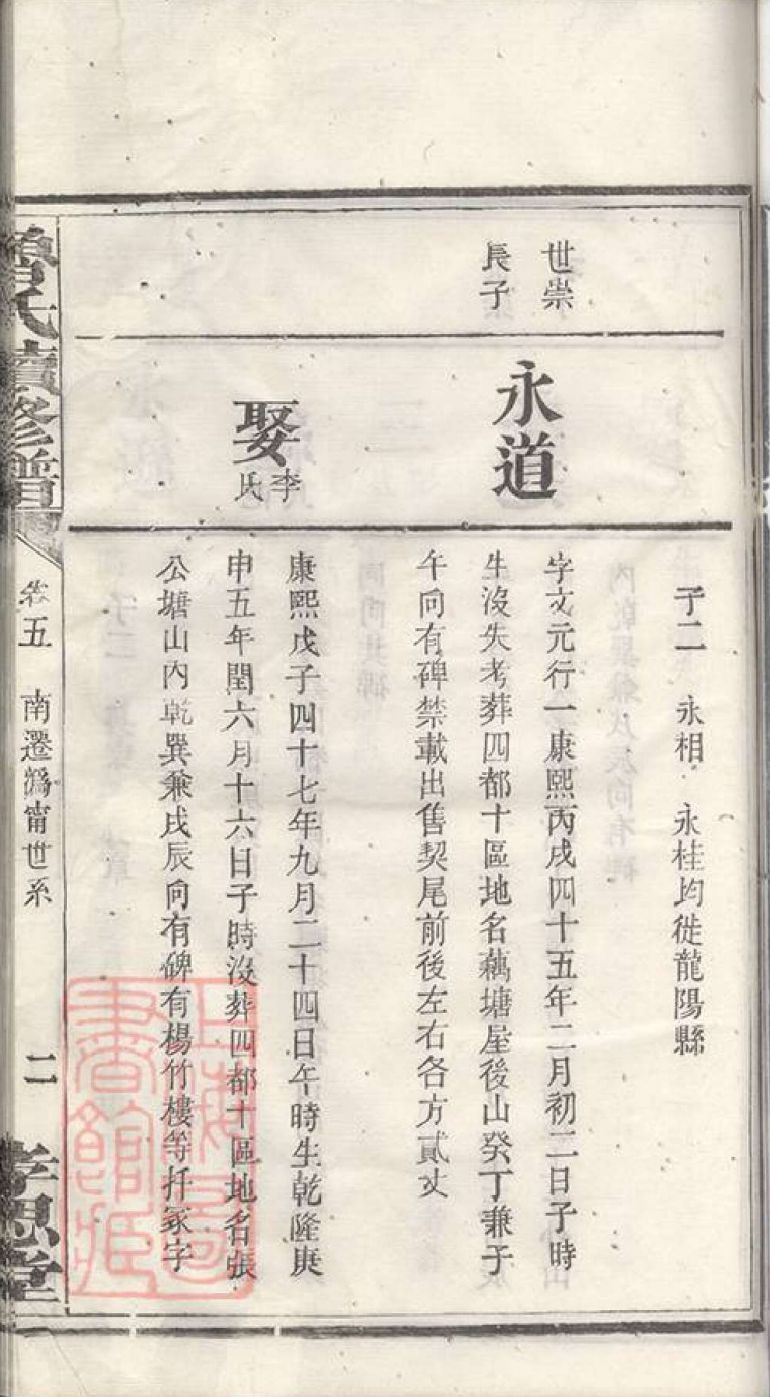 子二 永相 永桂均徙龍陽縣
世崇
長子
永道
字文元行一康熙丙戌四十五年二月初二日子時
生沒失考葬四都十區地名藕塘屋後山癸丁兼子
午向有碑禁載出售契尾前後左右各方貳丈
娶
李氏
康熙戊子四十七年九月二十四日午時生乾隆庚
申五年閏六月十六日子時沒葬四都十區地名張
公塘山內乾巽兼戌辰向有碑有楊竹樓等扦冢字
魯氏續修譜
卷五 南遷溈甯世系
二
孝思堂
上海圖書館藏